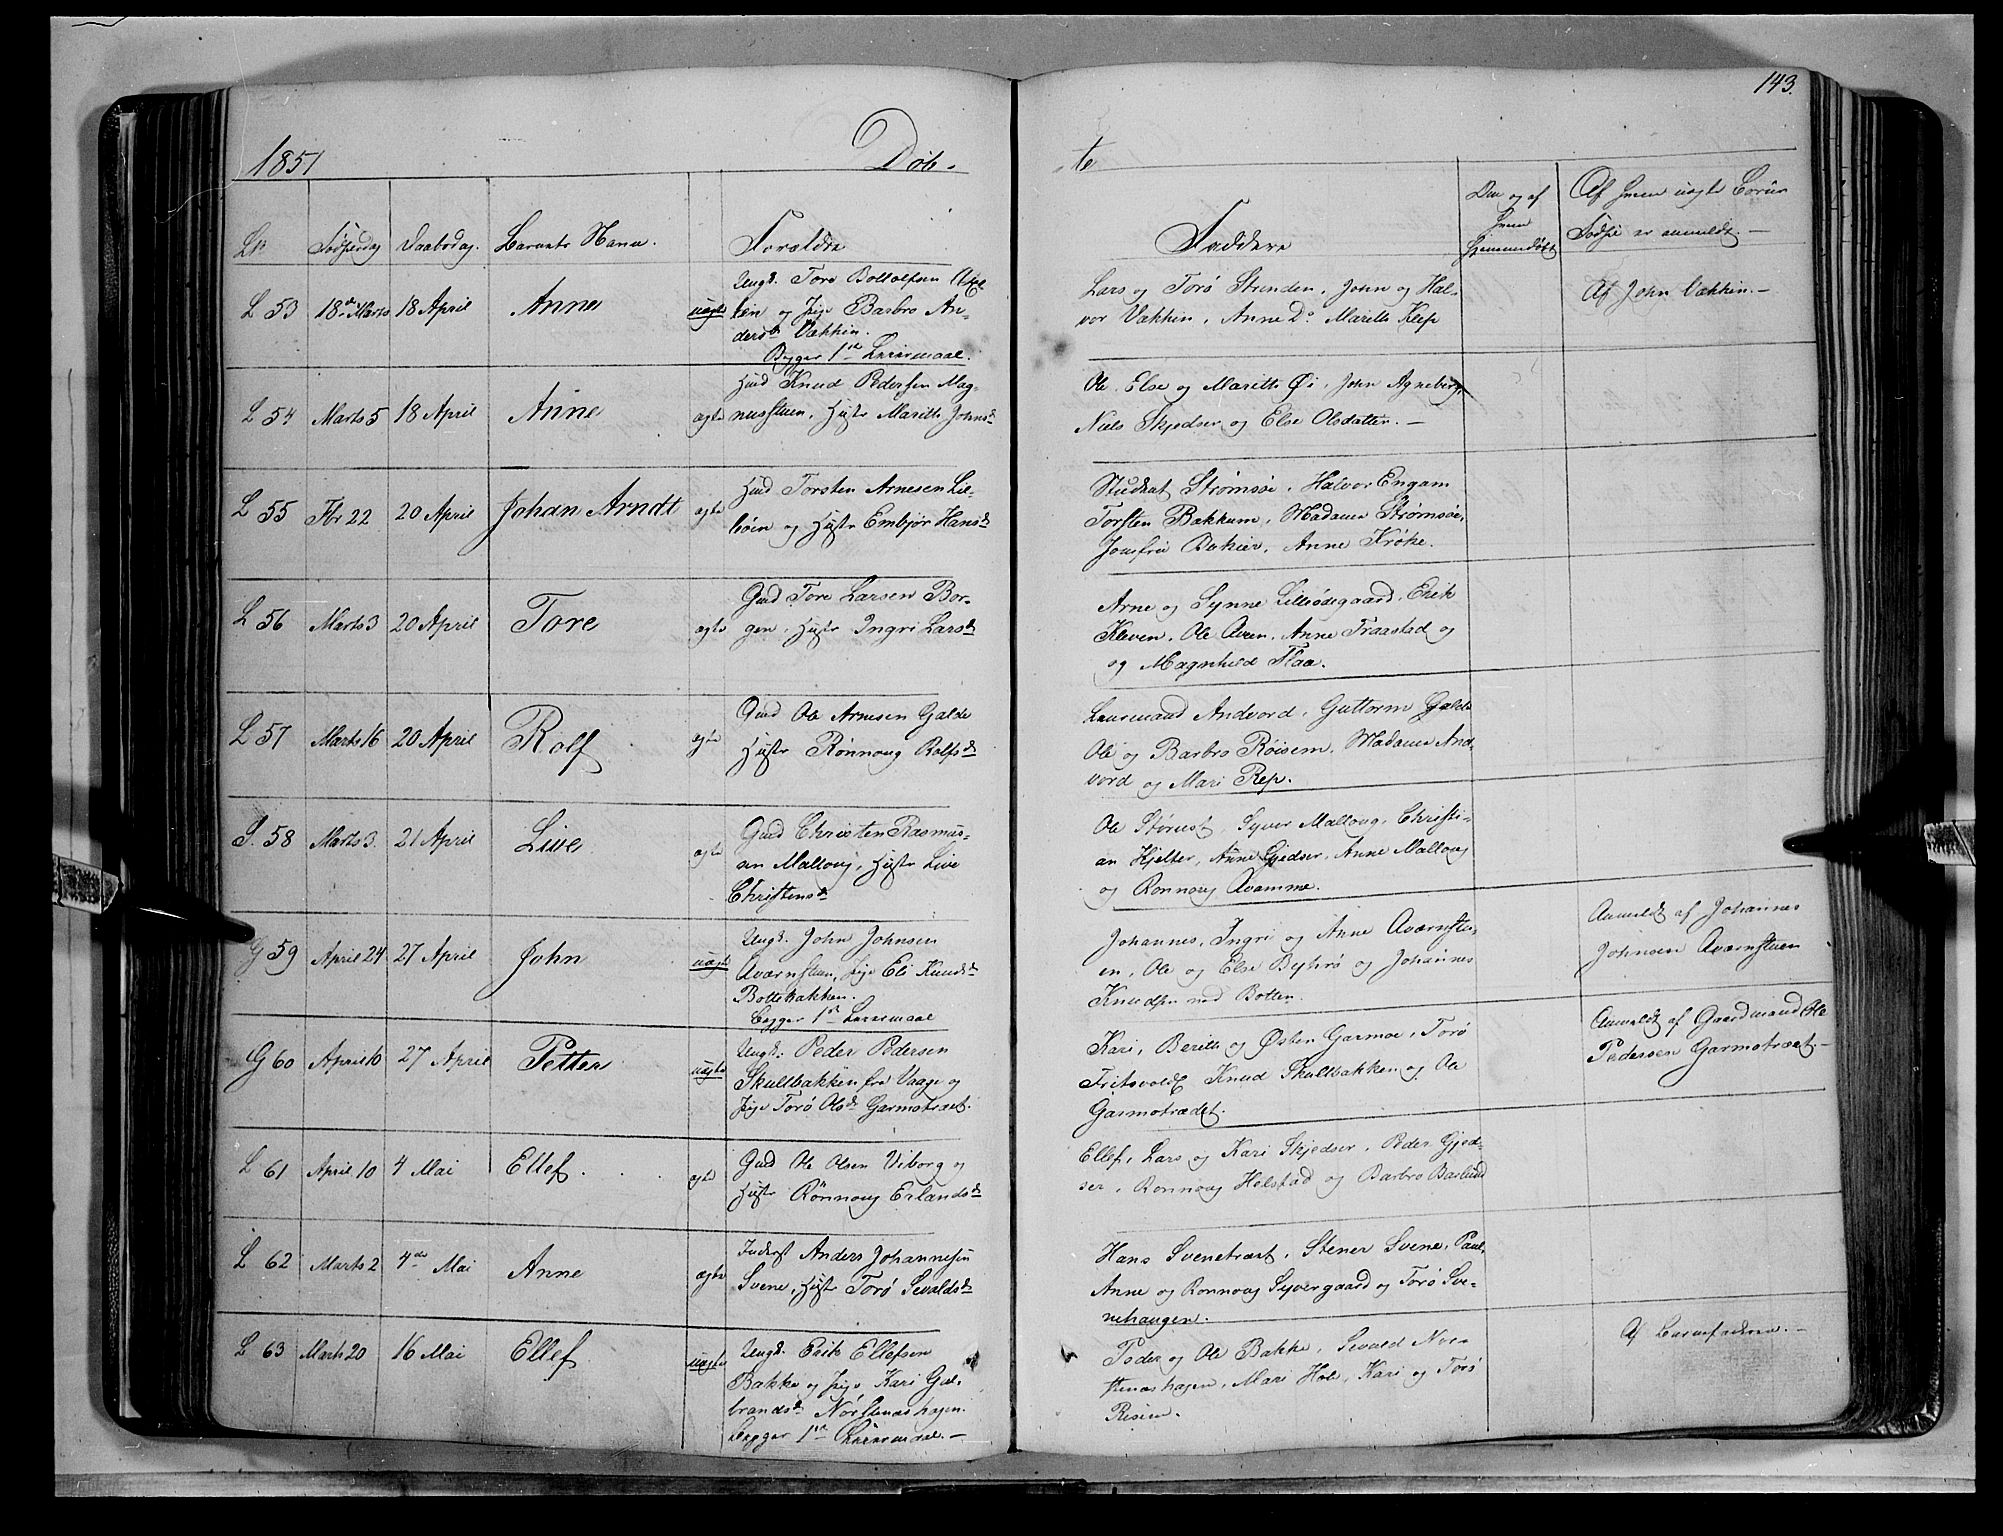 143.
1851
Døb-
-te
Fødselsdag Daabsdag. Barnets Navn.
Forældre
Faddere
Døe og af
hvem
hjemmedøbt
Af hvem uægte Børns
Fødsel er anmeldt. —
L 53 18de Marts 18 April Anne uægte
Ungk. Tore Bottolfsen
og Pige Barbro An-
dersdr Vækkin.
Begges 1ste Leiermaal.
Lars og Torø Strinden, John og Hal-
vor Vækkin, Anne Do Marith Klep
Af John Vækkin. —
L 54 Marts 5 18 April Anne ægte
Huusmd Knud Pedersen Mag-
nusstuen, Hustr Marith Johnsdr
Ole, Else og Marith Øi, John Agneberg,
Niels Skjedser og Else Olsdatter. —
L 55 Fbr 22 20 April Johan Arndt ægte
Huusmd Torsten Arnesen Lie-
høien og Hustr Embjør Hansdr
Strømsøe, Halvor Engam
Torsten Bakkum, Madame Strømsøe,
Jomfru Anne Krøke.
L 56 Marts 3 20 April Tore ægte
Gmd Tore Larsen Bor-
gen, Hustr Ingri Larsdr
Arne og Synne Lilleødegaard, Erik
Kleven, Ole Aaen, Anne Traastad og
og Magnhild Flaa.
L 57 Marts 16 20 April Rolf ægte
Gmd Ole Arnesen Galde
Hustr Rønnoug Rolfsdr
Lensmand Andvord, Guttorm Galde
Ole og Barbro Røisem, Madame And-
vord og Mari Rep.
S. 58 Marts 3. 21 April Live ægte
Gmd Christen Rasmus-
sen Malloug, Hustr Live
Christensdr
Ole Størust, Syver Malloug, Christi-
an Hjelter, Anne Gjedser, Anne Malloug
og Ronnoug Qvamme.
G 59 April 24 27 April John uægte
Ungk. John Johnsen
Qværnstuen, Pige Eli Knudsdr
Bottebakken.
Begges 1ste Leiermaal
Johannes, Ingri og Anne Qværnstu-
en, Ole og Else Byhrø og Johannes
Knudsen ned Botten.
Anmeldt af Johannes
Johnsen Qværnstuen
G 60 April 10 27 April Petter uægte
Ungk. Peder Pedersen
Skultbakken fra Vaage og
Pige Torø Olsdr Garmotræet.
Kari, Berith og Østen Garmoe, Torø
Fritsvold, Knud Skultbakken og Ole
Garmotrædet.
Anmeldt af Gaardmand Ole
Pedersen Garmotræet —
L 61 April 10 4 Mai Ellef. ægte
Gmd Ole Olsen Viborg og
Hustr Rønnoug Erlandsdr
Ellef, Lars og Kari Skjedser, Peder Gjed-
ser, Ronnoug Helstad og Barbro Baslund
L 62 Marts 2 4de Mai Anne ægte
Inderst Anders Johannesen
Svene, Hustr Torø Sevaldsdr
Hans Svenetræet, Stener Svene, Paul,
Anne og Ronnoug Syvergaard og Torø Sve-
nehaugen.
L 63 Marts 20 16 Mai Ellef. uægte
Ungk. Erik Ellefsen
Bakke og Pige Kari Gul-
brandsdr Norstenashagen.
Begges 1ste Leiermaal. —
Peder og Ole Bakke, Sevald Nor-
stenashagen, Mari Hole, Kari og Torø
Reisem.
Af Barnefaderen. —